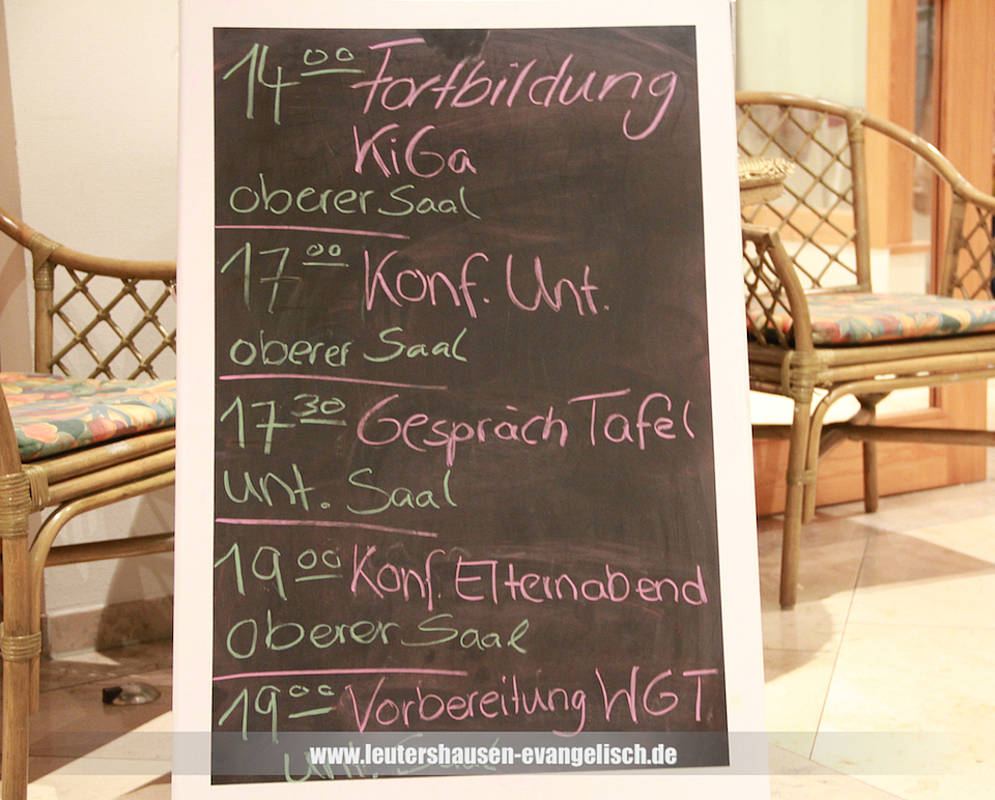 14 00 Fortbildung
KiGa
oberer Saal
17 00 Konf. Unt.
oberer Saal
17 30 Gespräch Tafel
unt. Saal
19 00 Konf. Elternabend
oberer Saal
19 00 Vorbereitung WGT
www.leutershausen-evangelisch.de
unt. Saal